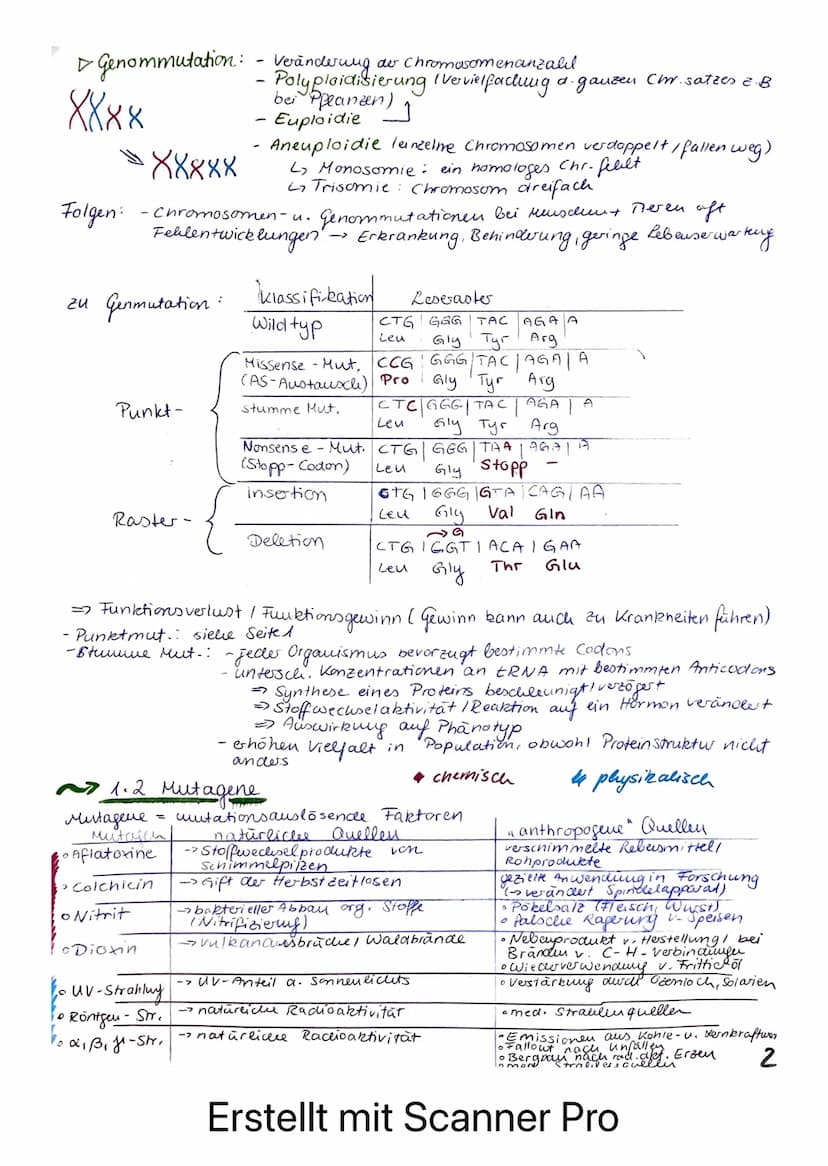 ▷ Genommutation: - Veränderung der Chromosomenanzahl
- Polyploidisierung (Vervielfachung d. ganzen Chr.satzes z.B
bei Pflanzen)
- Euploidie
- Aneuploidie (einzelne Chromosomen verdoppelt / fallen weg)
↳ Monosomie: ein homologes Chr. fehlt
↳ Trisomie: Chromosom dreifach
Folgen: - Chromosomen- u. Genommutationen bei Menschen + Tieren oft
Fehlentwicklungen → Erkrankung, Behinderung, geringe Lebenserwartung
zu Genmutation: Klassifikation Leseraster
Wildtyp CTG | GGG | TAC | AGA | A
Leu Gly Tyr Arg
Missense-Mut. CCG | GGG | TAC | AGA | A
(AS-Austausch) Pro Gly Tyr Arg
Punkt- stumme Mut. CTC | GGG | TAC | AGA | A
Leu Gly Tyr Arg
Nonsense-Mut. CTG | GGG | TAA | AGA | A
(Stopp-Codon) Leu Gly Stopp -
Insertion GTG | GGG | GTA | CAG | AA
Raster- Leu Gly Val Gln
→ G
Deletion CTG | GGT | ACA | GAA
Leu Gly Thr Glu
⇒ Funktionsverlust / Funktionsgewinn (Gewinn kann auch zu Krankheiten führen)
- Punktmut.: siehe Seite 1
- Stumme Mut.: - jeder Organismus bevorzugt bestimmte Codons
- untersch. Konzentrationen an tRNA mit bestimmten Anticodons
⇒ Synthese eines Proteins beschleunigt/verzögert
⇒ Stoffwechselaktivität / Reaktion auf ein Hormon verändert
⇒ Auswirkung auf Phänotyp
- erhöhen Vielfalt in Population, obwohl Proteinstruktur nicht
anders
1.2 Mutagene chemisch physikalisch
Mutagene = mutationsauslösende Faktoren
Mutagen natürliche Quellen „anthropogene" Quellen
Aflatoxine → Stoffwechselprodukte von verschimmelte Lebensmittel/
Schimmelpilzen Rohprodukte
Colchicin → Gift der Herbstzeitlosen gezielte Anwendung in Forschung
(→ verändert Spindelapparat)
Nitrit → bakterieller Abbau org. Stoffe Pökelsalz (Fleisch, Wurst)
(Nitrifizierung) falsche Lagerung v. Speisen
Dioxin → Vulkanausbrüche / Waldbrände Nebenprodukt v. Herstellung / bei
Bränden v. C-H-Verbindungen
Wiederverwendung v. Frittieröl
UV-Strahlung → UV-Anteil d. Sonnenlichts Verstärkung durch Ozonloch, Solarien
Röntgen-Str. → natürliche Radioaktivität med. Strahlenquellen
α, β, γ-Str. → natürliche Radioaktivität Emissionen aus Kohle- u. Kernkraftwerken
Fallout nach Unfällen
Bergbau nach rad. akt. Erzen
med. Strahlenquellen
2
Erstellt mit Scanner Pro